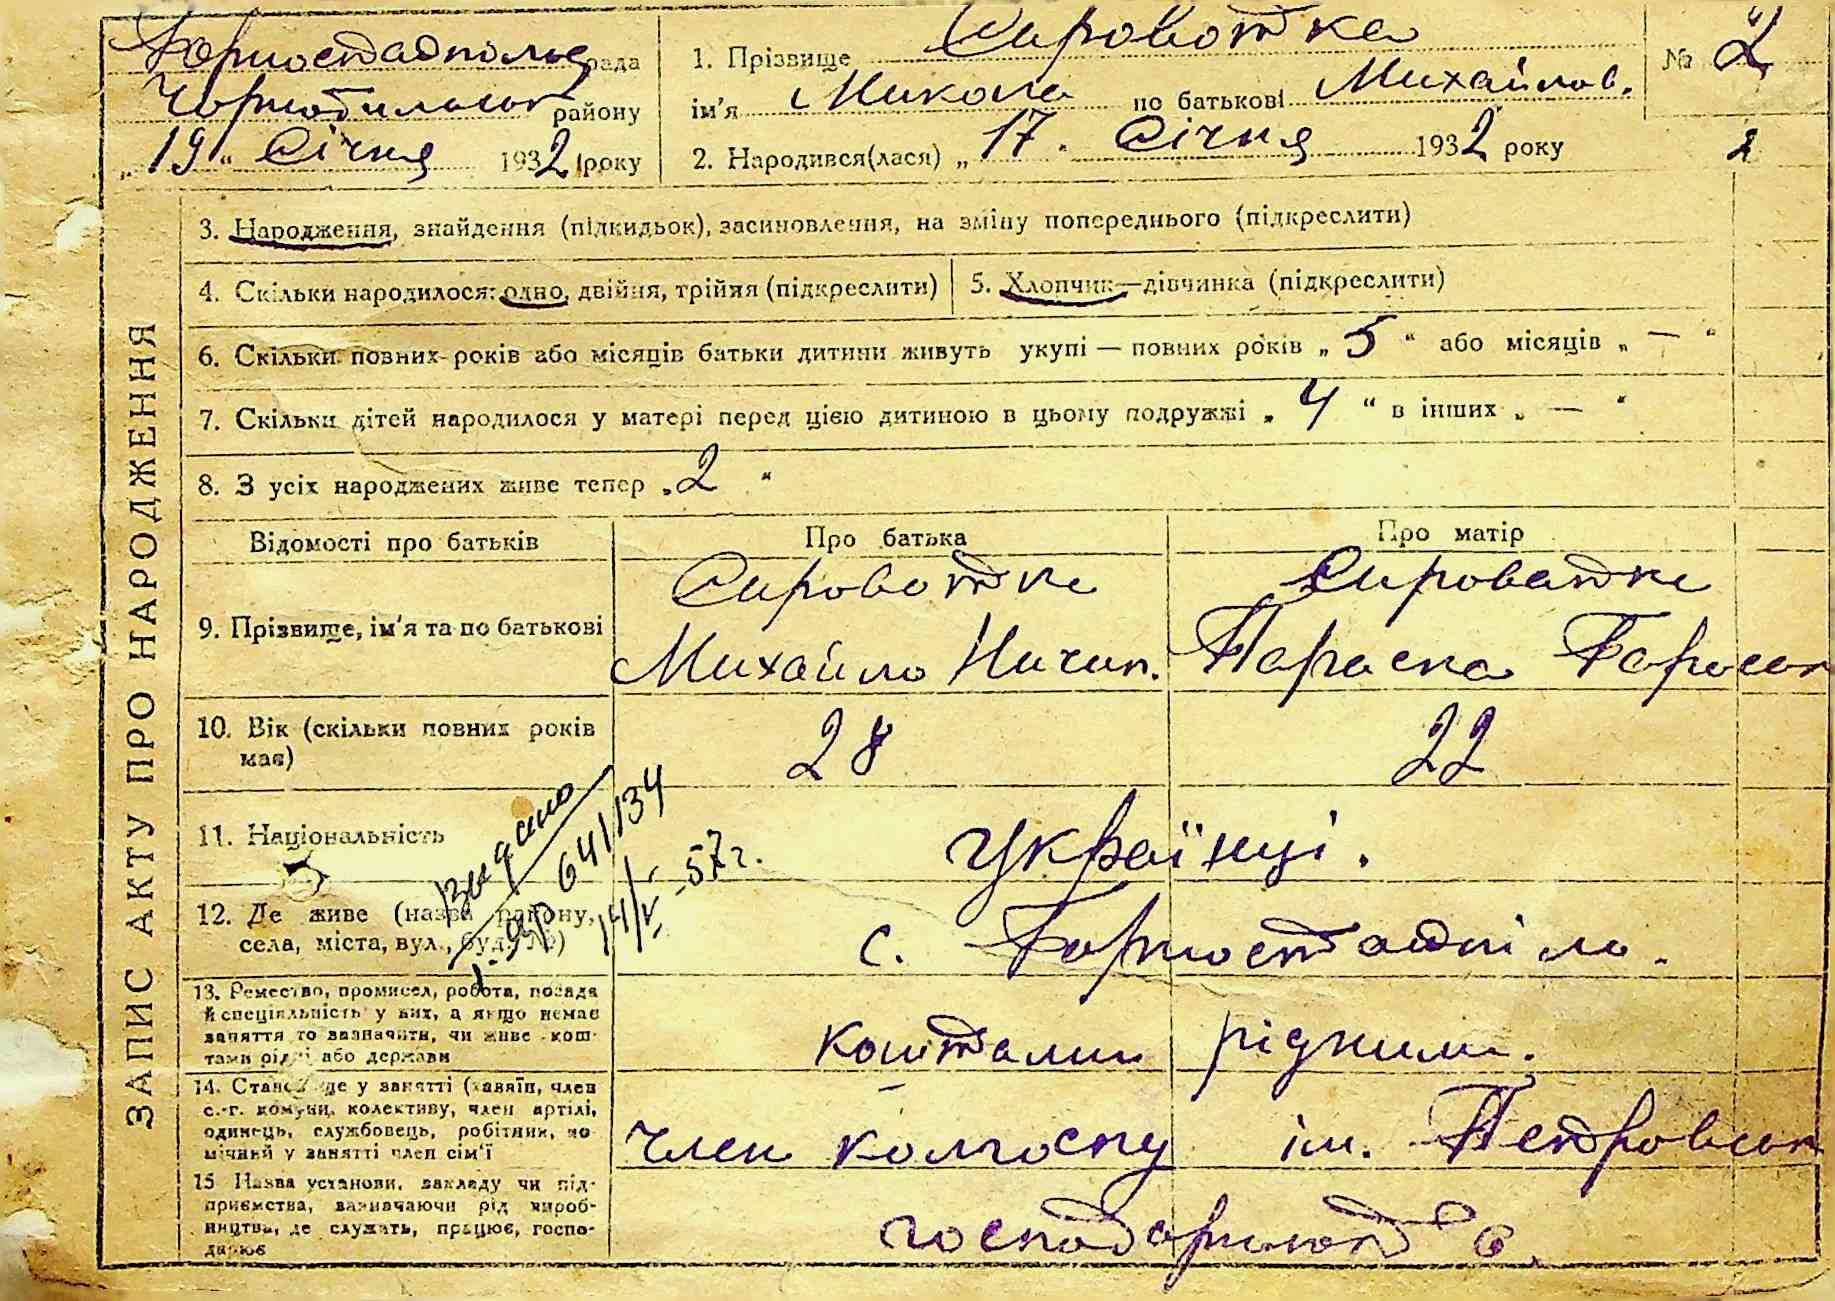 Горностайпольс рада
Чорнобильськ району
„19“ Січня 1932 року
1. Прізвище Сироватка
№ 2
ім'я Микола по батькові Михайлов.
2. Народився(лася) „17“ Січня 1932 року
2
ЗАПИС АКТУ ПРО НАРОДЖЕННЯ
3. Народження, знайдення (підкидьок), засиновлення, на зміну попереднього (підкреслити)
4. Скільки народилося: одно, двійня, трійня (підкреслити)
5. Хлопчик—дівчинка (підкреслити)
6. Скільки повних років або місяців батьки дитини живуть укупі — повних років „5“ або місяців „—“
7. Скільки дітей народилося у матері перед цією дитиною в цьому подружжі „4“ в інших „—“
8. З усіх народжених живе тепер „2“
Відомості про батьків
Про батька
Про матір
9. Прізвище, ім'я та по батькові
Сироватка
Михайло Ничип.
Сироватка
Параска Борисов
10. Вік (скільки повних років
має)
28
22
11. Національність
Українці.
Выдано
641134
14/V-57г.
12. Де живе (назва району,
села, міста, вул., буд. №)
с. Горностайпіль.
13. Ремество, промисел, робота, посада
й спеціяльність у них, а якщо немає
заняття то зазначити, чи живе кош-
тами рідні або держави
коштами рідними.
14. Становище у занятті (хазяїн, член
с.-г. комуни, колективу, член артілі,
одинець, службовець, робітник, по-
мічний у занятті член сім'ї
член колгоспу ім. Петровськ
15 Назва установи, закладу чи під-
приємства, зазначаючи рід вироб-
ництва, де служить, працює, госпо-
дарює
господарюють